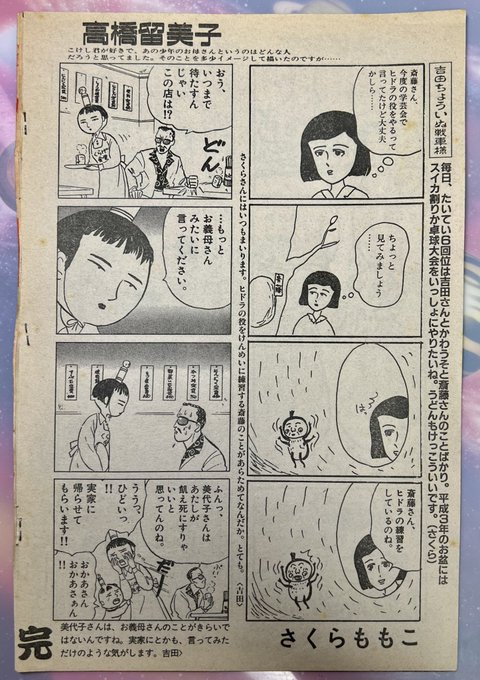 高橋留美子
こけし君が好きで、あの少年のお母さんというのはどんな人
だろうと思ってました。そのことを多少イメージして描いたのですが……
吉田ちょういぬ戦車様
毎日、たいてい6回位は吉田さんとかわうそと斎藤さんのことばかり。平成3年のお盆には
スイカ割りか卓球大会をいっしょにやりたいね。うどんもけっこういいです。(さくら)
斎藤さん、
今度の学芸会で
ヒドラの役をやるって
言ってたけど大丈夫
かしら…
ちょっと
見てみましょう
……
斎藤
はっ
斎藤さん、
ヒドラの練習を
しているのね。
さくらももこ
さくらさんにはいつもまいります。ヒドラの役をけんめいに練習する斎藤のことがあらためてなんだか、とても。〈吉田〉
おう、
いつまで
待たすん
じゃい
この店は!?
どん
…もっと
お義母さん
みたいに
言ってください。
ふんっ、
美代子さんは
あたしが
飢え死にすりゃ
いいと
思ってんのね。
ううっ、
ひどいっ
!!
実家に
帰らせて
もらいます!!
おかあさん
おかあさぁん
美代子さんは、お義母さんのことがきらいで
はないんですね。実家にとかも、言ってみた
だけのような気がします。吉田〉
完